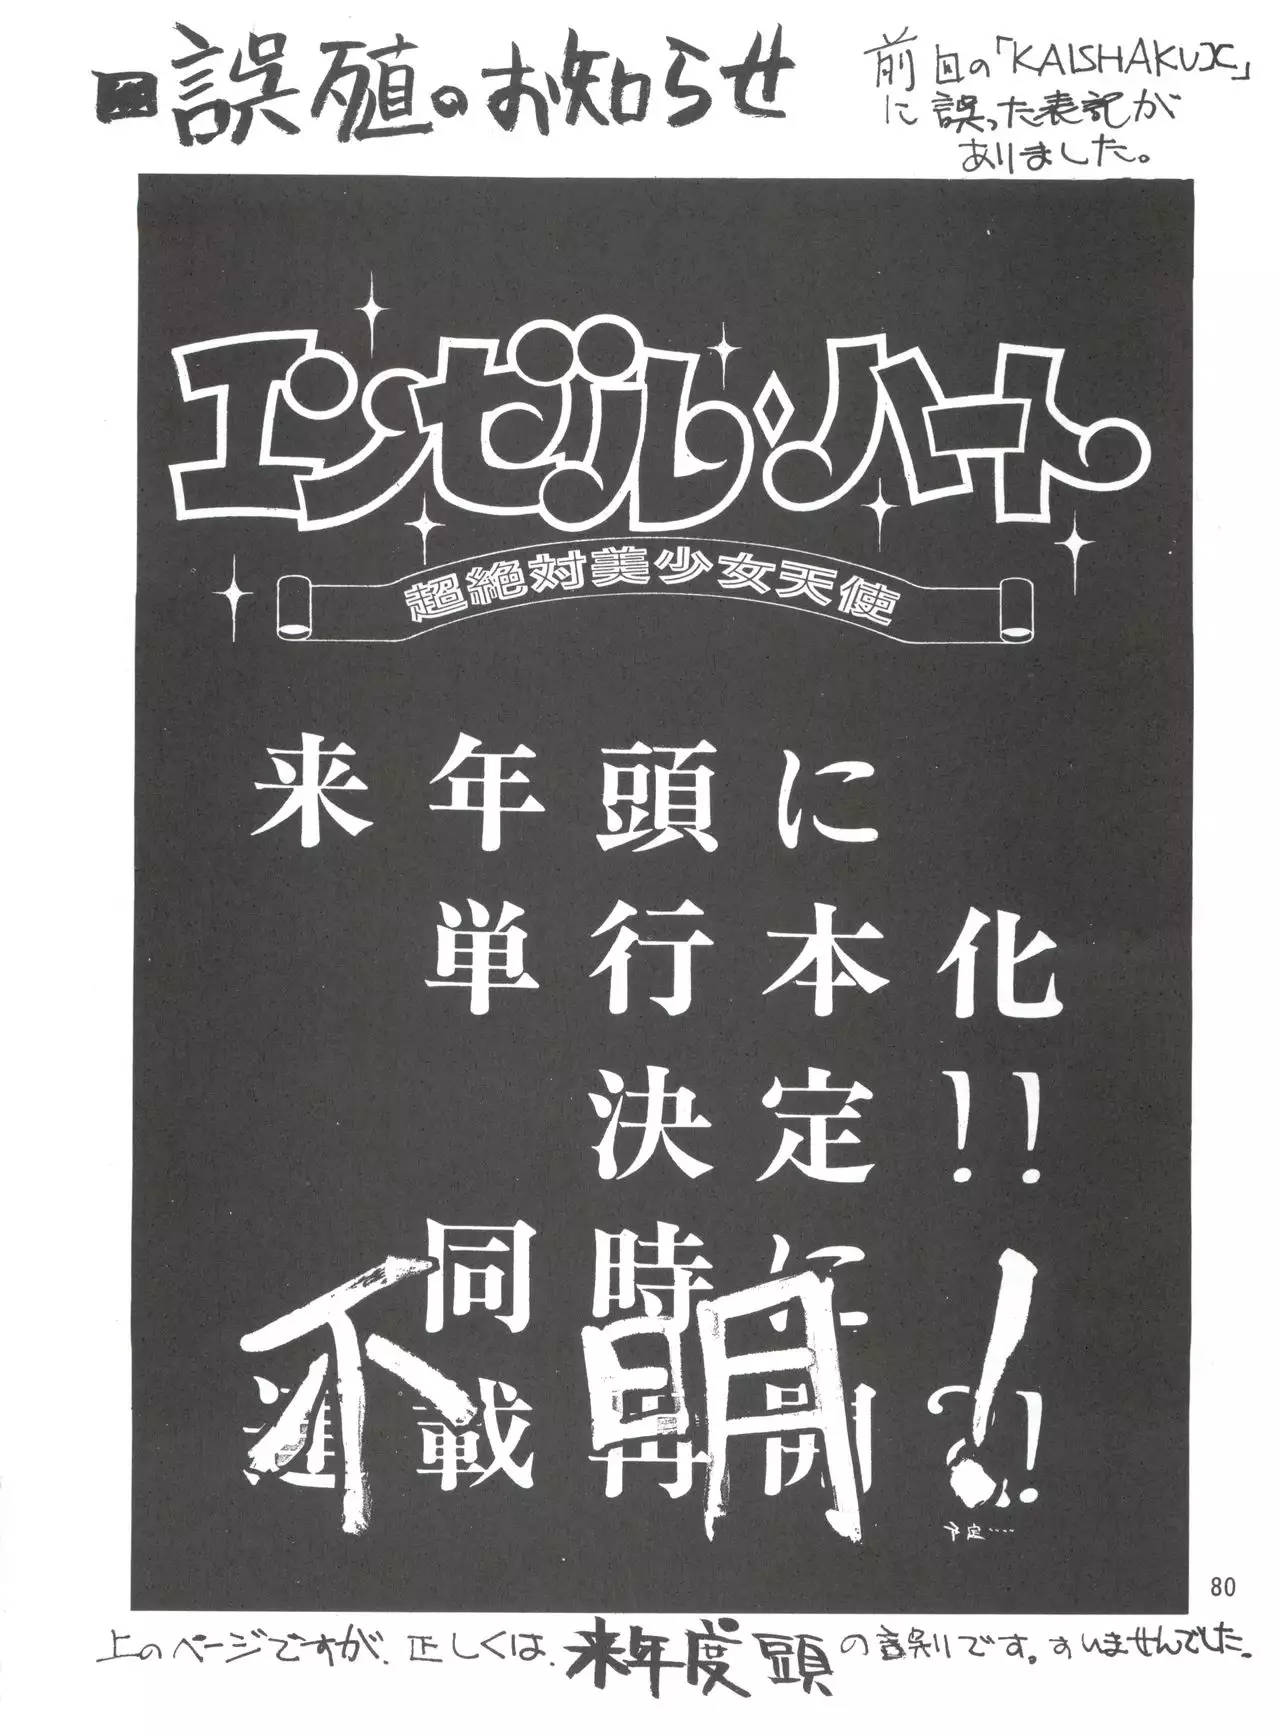 誤殖のお知らせ
前回の「KAISHAKUX」
に誤った表記が
ありました。
エンゼル・ハート
超絶対美少女天使
来年頭に
単行本化
決定!!
同時に
連載再開?!!
不明!
予定‥‥
80
上のページですが、正しくは、来年度頭の誤りです。すいませんでした。